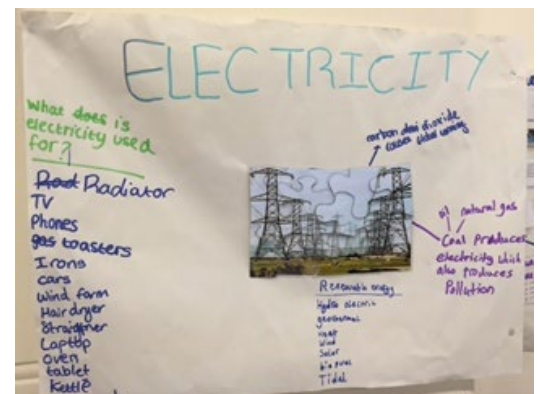 ELECTRICITY
What does is
electricity used
for?
Radiator
TV
Phones
gas toasters
Irons
cars
Wind farm
Hair dryer
Straightner
Laptop
oven
tablet
Kettle
carbon dioxide
causes global warming
oil natural gas
Coal Produces
electricity which
also produces
Pollution
Renewable energy
Hydro electric
geothermal
Wind
Solar
bio fuel
Tidal